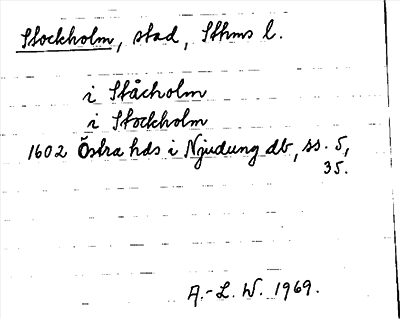 Stockholm, stad, Sthms l.
i Ståcholm
i Stockholm
1602 Östra hds i Njudung db, ss. 5,
35.
A.-L. W. 1969.